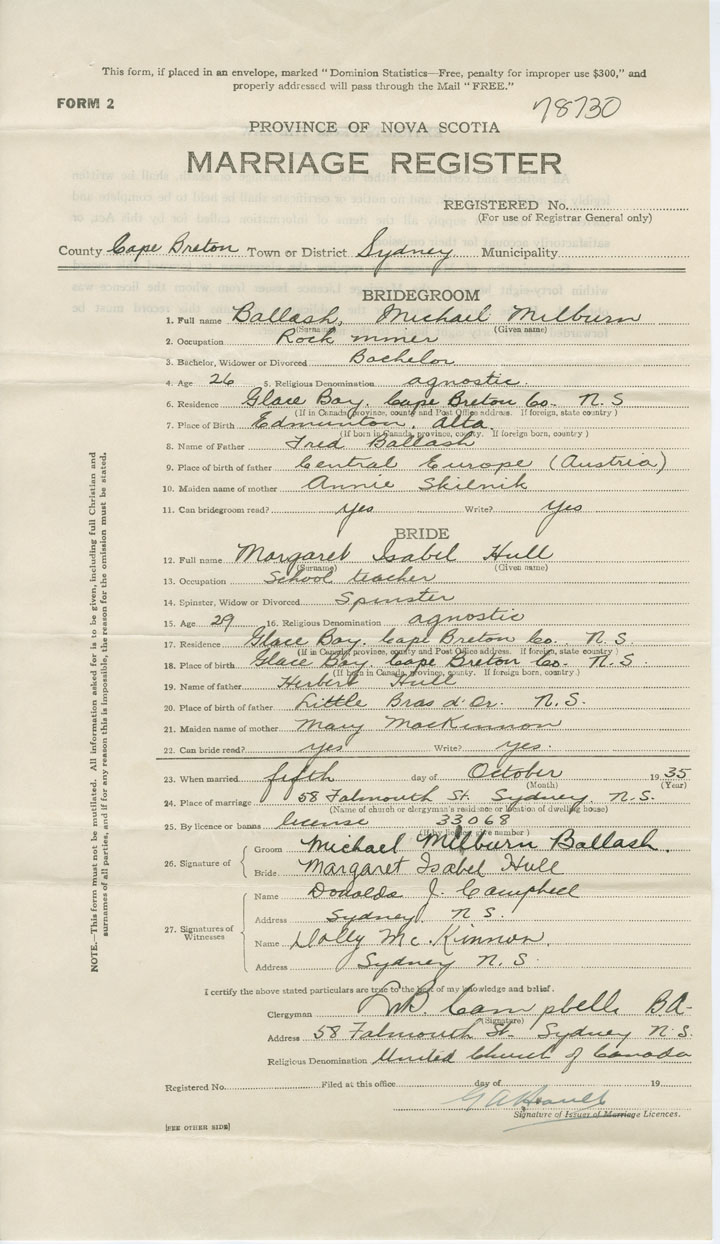 This form, if placed in an envelope, marked "Dominion Statistics—Free, penalty for improper use $300," and
properly addressed will pass through the Mail "FREE."
FORM 2
78730
PROVINCE OF NOVA SCOTIA
MARRIAGE REGISTER
REGISTERED No.
(For use of Registrar General only)
County Cape Breton Town or District Sydney Municipality
BRIDEGROOM
1. Full name Ballash, Michael Milburn
(Surname) (Given name)
2. Occupation Rock miner
3. Bachelor, Widower or Divorced Bachelor
4. Age 26 5. Religious Denomination agnostic.
6. Residence Glace Bay, Cape Breton Co. N.S
(If in Canada, province, county and Post Office address. If foreign, state country)
7. Place of Birth Edmunton, Alta.
(If born in Canada, province, county. If foreign born, country)
8. Name of Father Fred Ballash
9. Place of birth of father Central Europe (Austria)
10. Maiden name of mother Annie Skilnik
11. Can bridegroom read? yes Write? yes
BRIDE
12. Full name Margaret Isabel Hull
(Surname) (Given name)
13. Occupation School teacher
14. Spinster, Widow or Divorced Spinster
15. Age 29 16. Religious Denomination agnostic
17. Residence Glace Bay, Cape Breton Co. N.S.
(If in Canada, province, county and Post Office address. If foreign, state country)
18. Place of birth Glace Bay, Cape Breton Co. N.S.
(If born in Canada, province, county. If foreign born, country)
19. Name of father Herbert Hull
20. Place of birth of father Little Bras d'Or. N.S.
21. Maiden name of mother Mary MacKinnon
22. Can bride read? yes Write? yes.
23. When married fifth day of October 1935
(Month) (Year)
24. Place of marriage 58 Falmouth St. Sydney, N.S.
(Name of church or clergyman's residence or location of dwelling house)
25. By licence or banns license 33068
(If by licence give number)
26. Signature of
Groom Michael Milburn Ballash.
Bride Margaret Isabel Hull
27. Signatures of Witnesses
Name Donalda J. Campbell
Address Sydney, N S.
Name Dolly Mc.Kinnon.
Address Sydney N.S.
I certify the above stated particulars are true to the best of my knowledge and belief.
Clergyman Campbell BA-
(Signature)
Address 58 Falmouth St. Sydney N.S.
Religious Denomination United Church of Canada
Registered No. Filed at this office day of 19
Signature of Issuer of Marriage Licences.
[SEE OTHER SIDE]
NOTE.—This form must not be mutilated. All information asked for is to be given, including full Christian and
surnames of all parties, and if for any reason this is impossible, the reason for the omission must be stated.